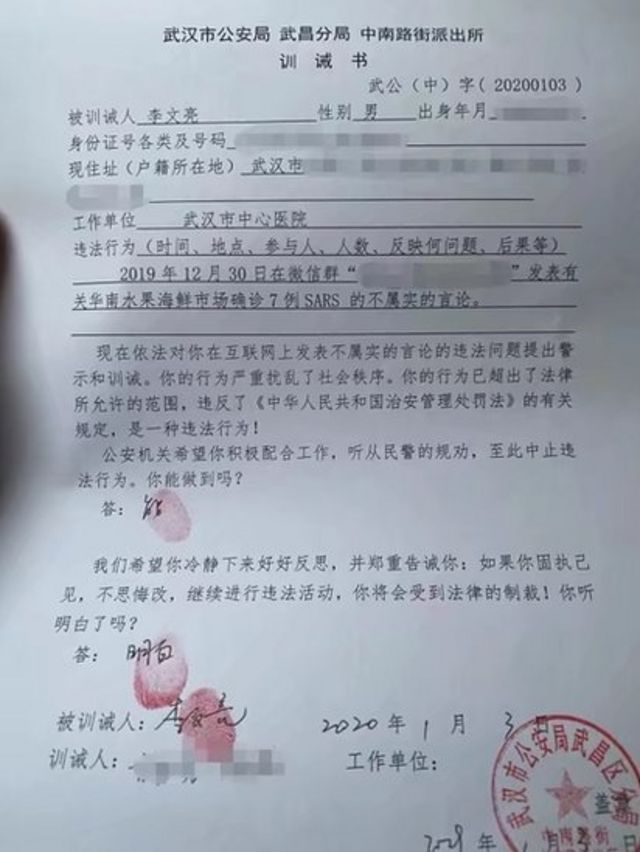 武汉市公安局 武昌分局 中南路街派出所
训 诫 书
武公（中）字（ 20200103 ）
被训诫人 李文亮 性别 男 出身年月
身份证号各类及号码
现住址（户籍所在地） 武汉市
工作单位 武汉市中心医院
违法行为（时间、地点、参与人、人数、反映何问题、后果等）
2019 年 12 月 30 日在微信群“ ”发表有
关华南水果海鲜市场确诊 7 例 SARS 的不属实的言论。
现在依法对你在互联网上发表不属实的言论的违法问题提出警
示和训诫。你的行为严重扰乱了社会秩序。你的行为已超出了法律
所允许的范围，违反了《中华人民共和国治安管理处罚法》的有关
规定，是一种违法行为！
公安机关希望你积极配合工作，听从民警的规劝，至此中止违
法行为。你能做到吗？
答： 能
我们希望你冷静下来好好反思，并郑重告诫你：如果你固执己
见，不思悔改，继续进行违法活动，你将会受到法律的制裁！你听
明白了吗？
答： 明白
被训诫人：李文亮 2020 年 1 月 3 日
训诫人： 工作单位：
武汉市公安局武昌区分局
中南路街
年 月